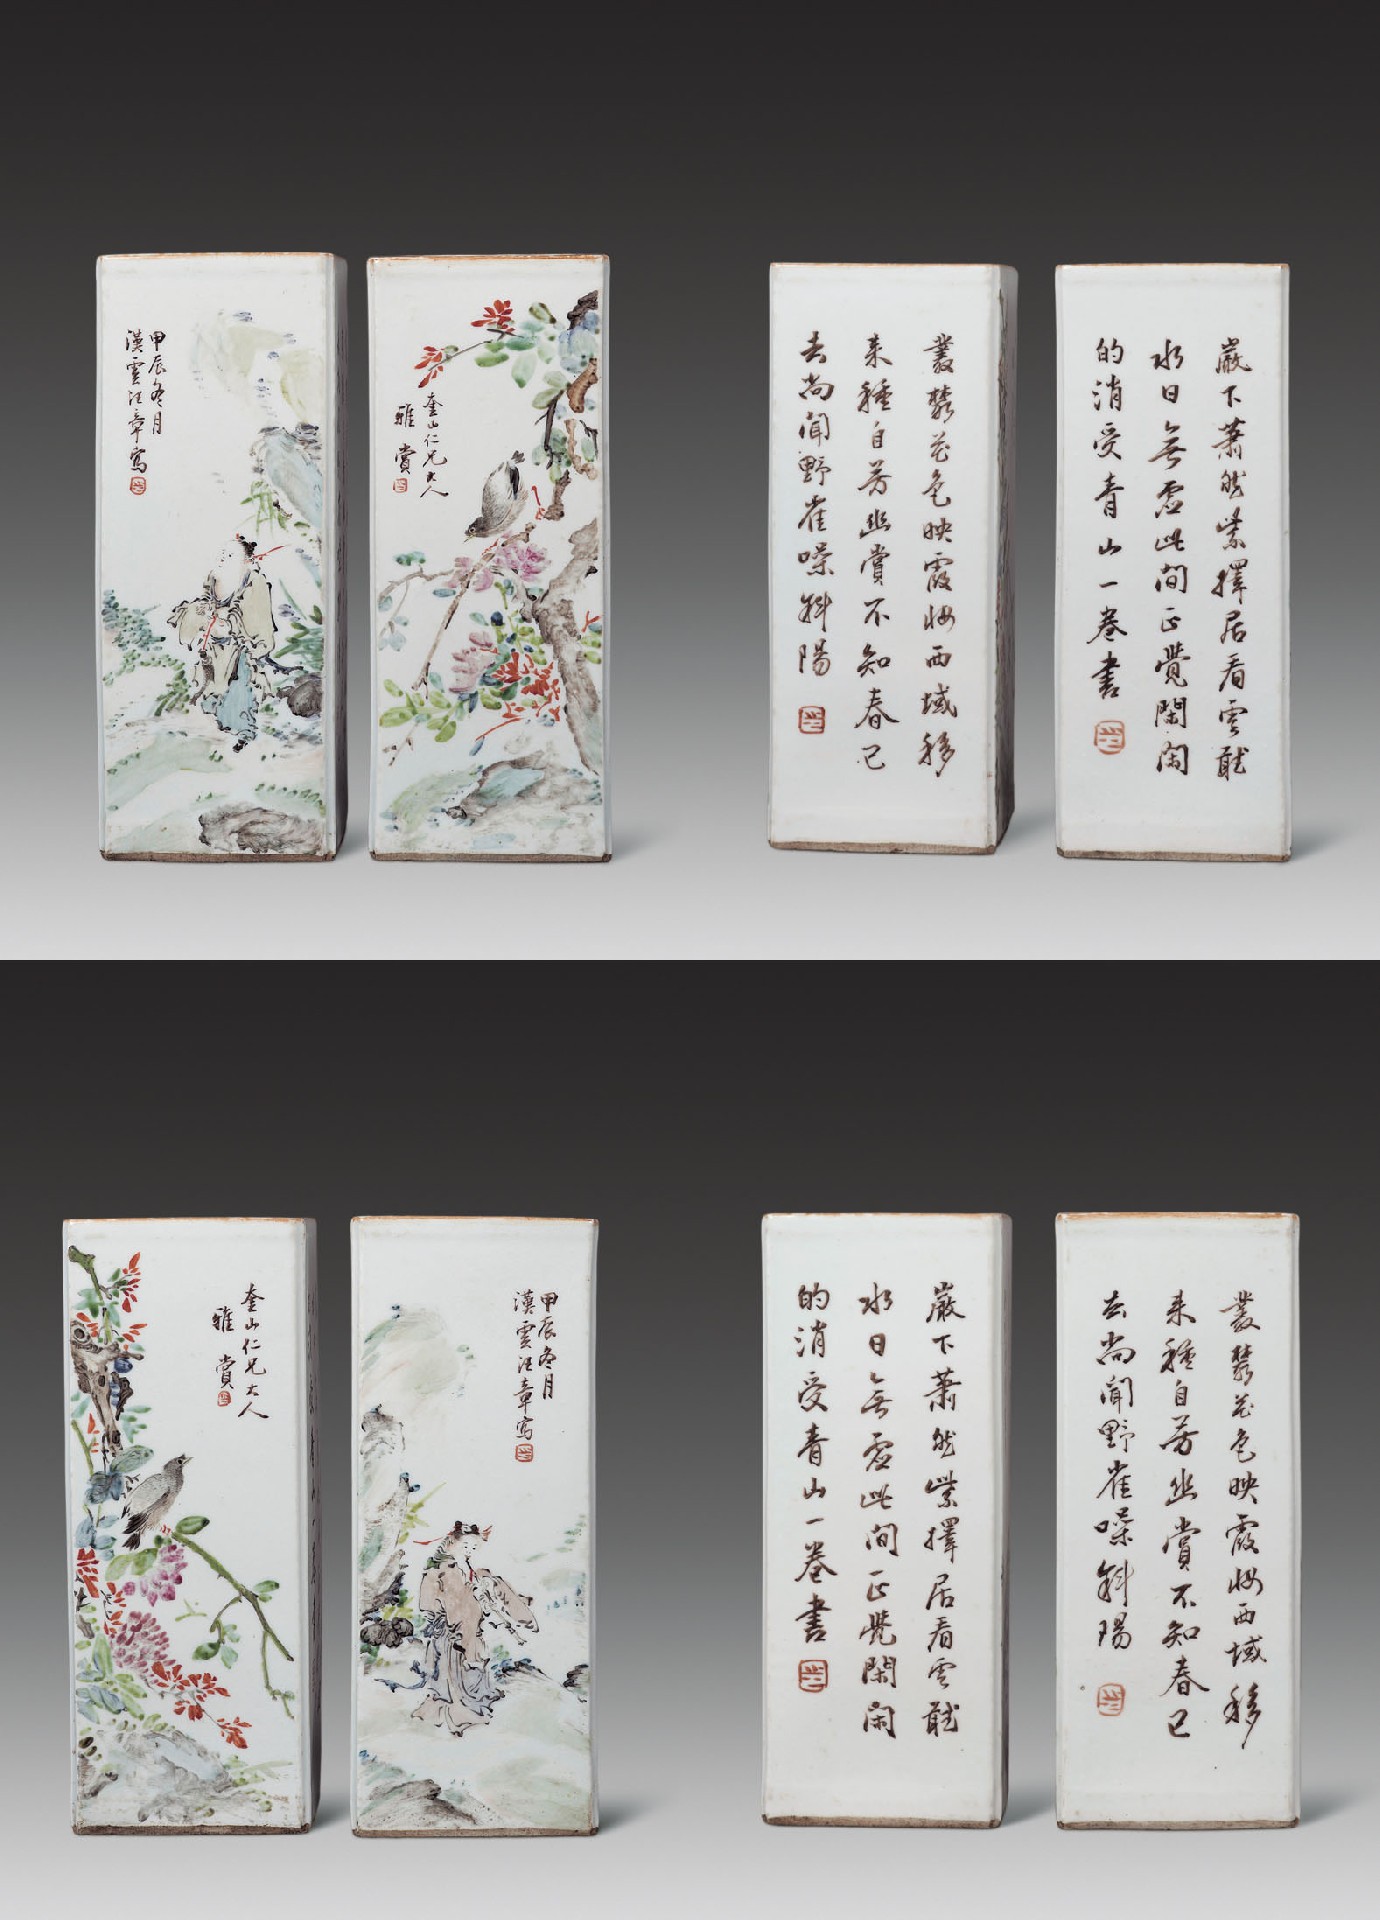 甲辰冬月
漢雲汪章寫
奎山仁兄大人
雅賞
叢叢花色映霞妝西域移
来種自芳幽賞不知春已
去尚聞野雀噪斜陽
巖下蕭然紫擇居看雲酙
水日無虛此間正覺閑閑
的消受青山一卷書
奎山仁兄大人
雅賞
甲辰冬月
漢雲汪章寫
巖下蕭然紫擇居看雲酙
水日無虛此間正覺閑閑
的消受青山一卷書
叢叢花色映霞妝西域移
来種自芳幽賞不知春已
去尚聞野雀噪斜陽